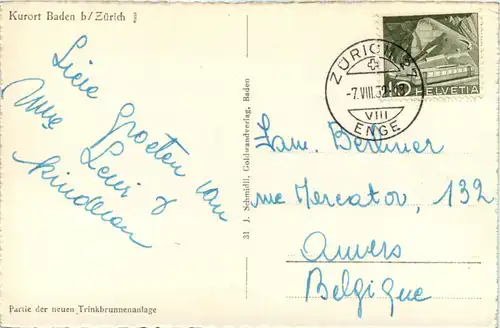 Kurort Baden b/Zürich
Lieve
Groeten van
Leni &
kinderen
31 J. Schmidli, Goldwandverlag, Baden
ZÜRICH
-7.VIII.52
VIII
ENGE
HELVETIA
Fam. Berliner
rue Mercator, 132
Anvers
Belgique
Partie der neuen Trinkbrunnenanlage